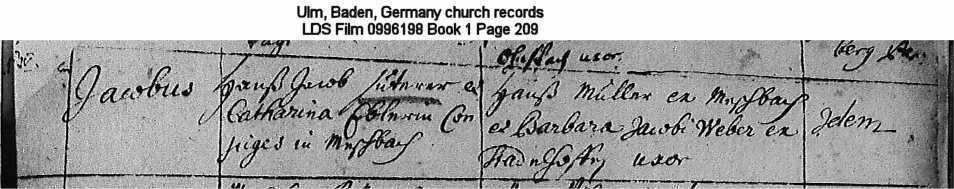 Ulm, Baden, Germany church records
LDS Film 0996198 Book 1 Page 209
uxor.
berg
30.
Jacobus
Hanß Jacob Suterer et
Catharina Eblerin Con
juges in Meschbach
Hanß Müller ex Meschbach
et Barbara Jacobi Weber ex
Stadelhoffen uxor
Idem